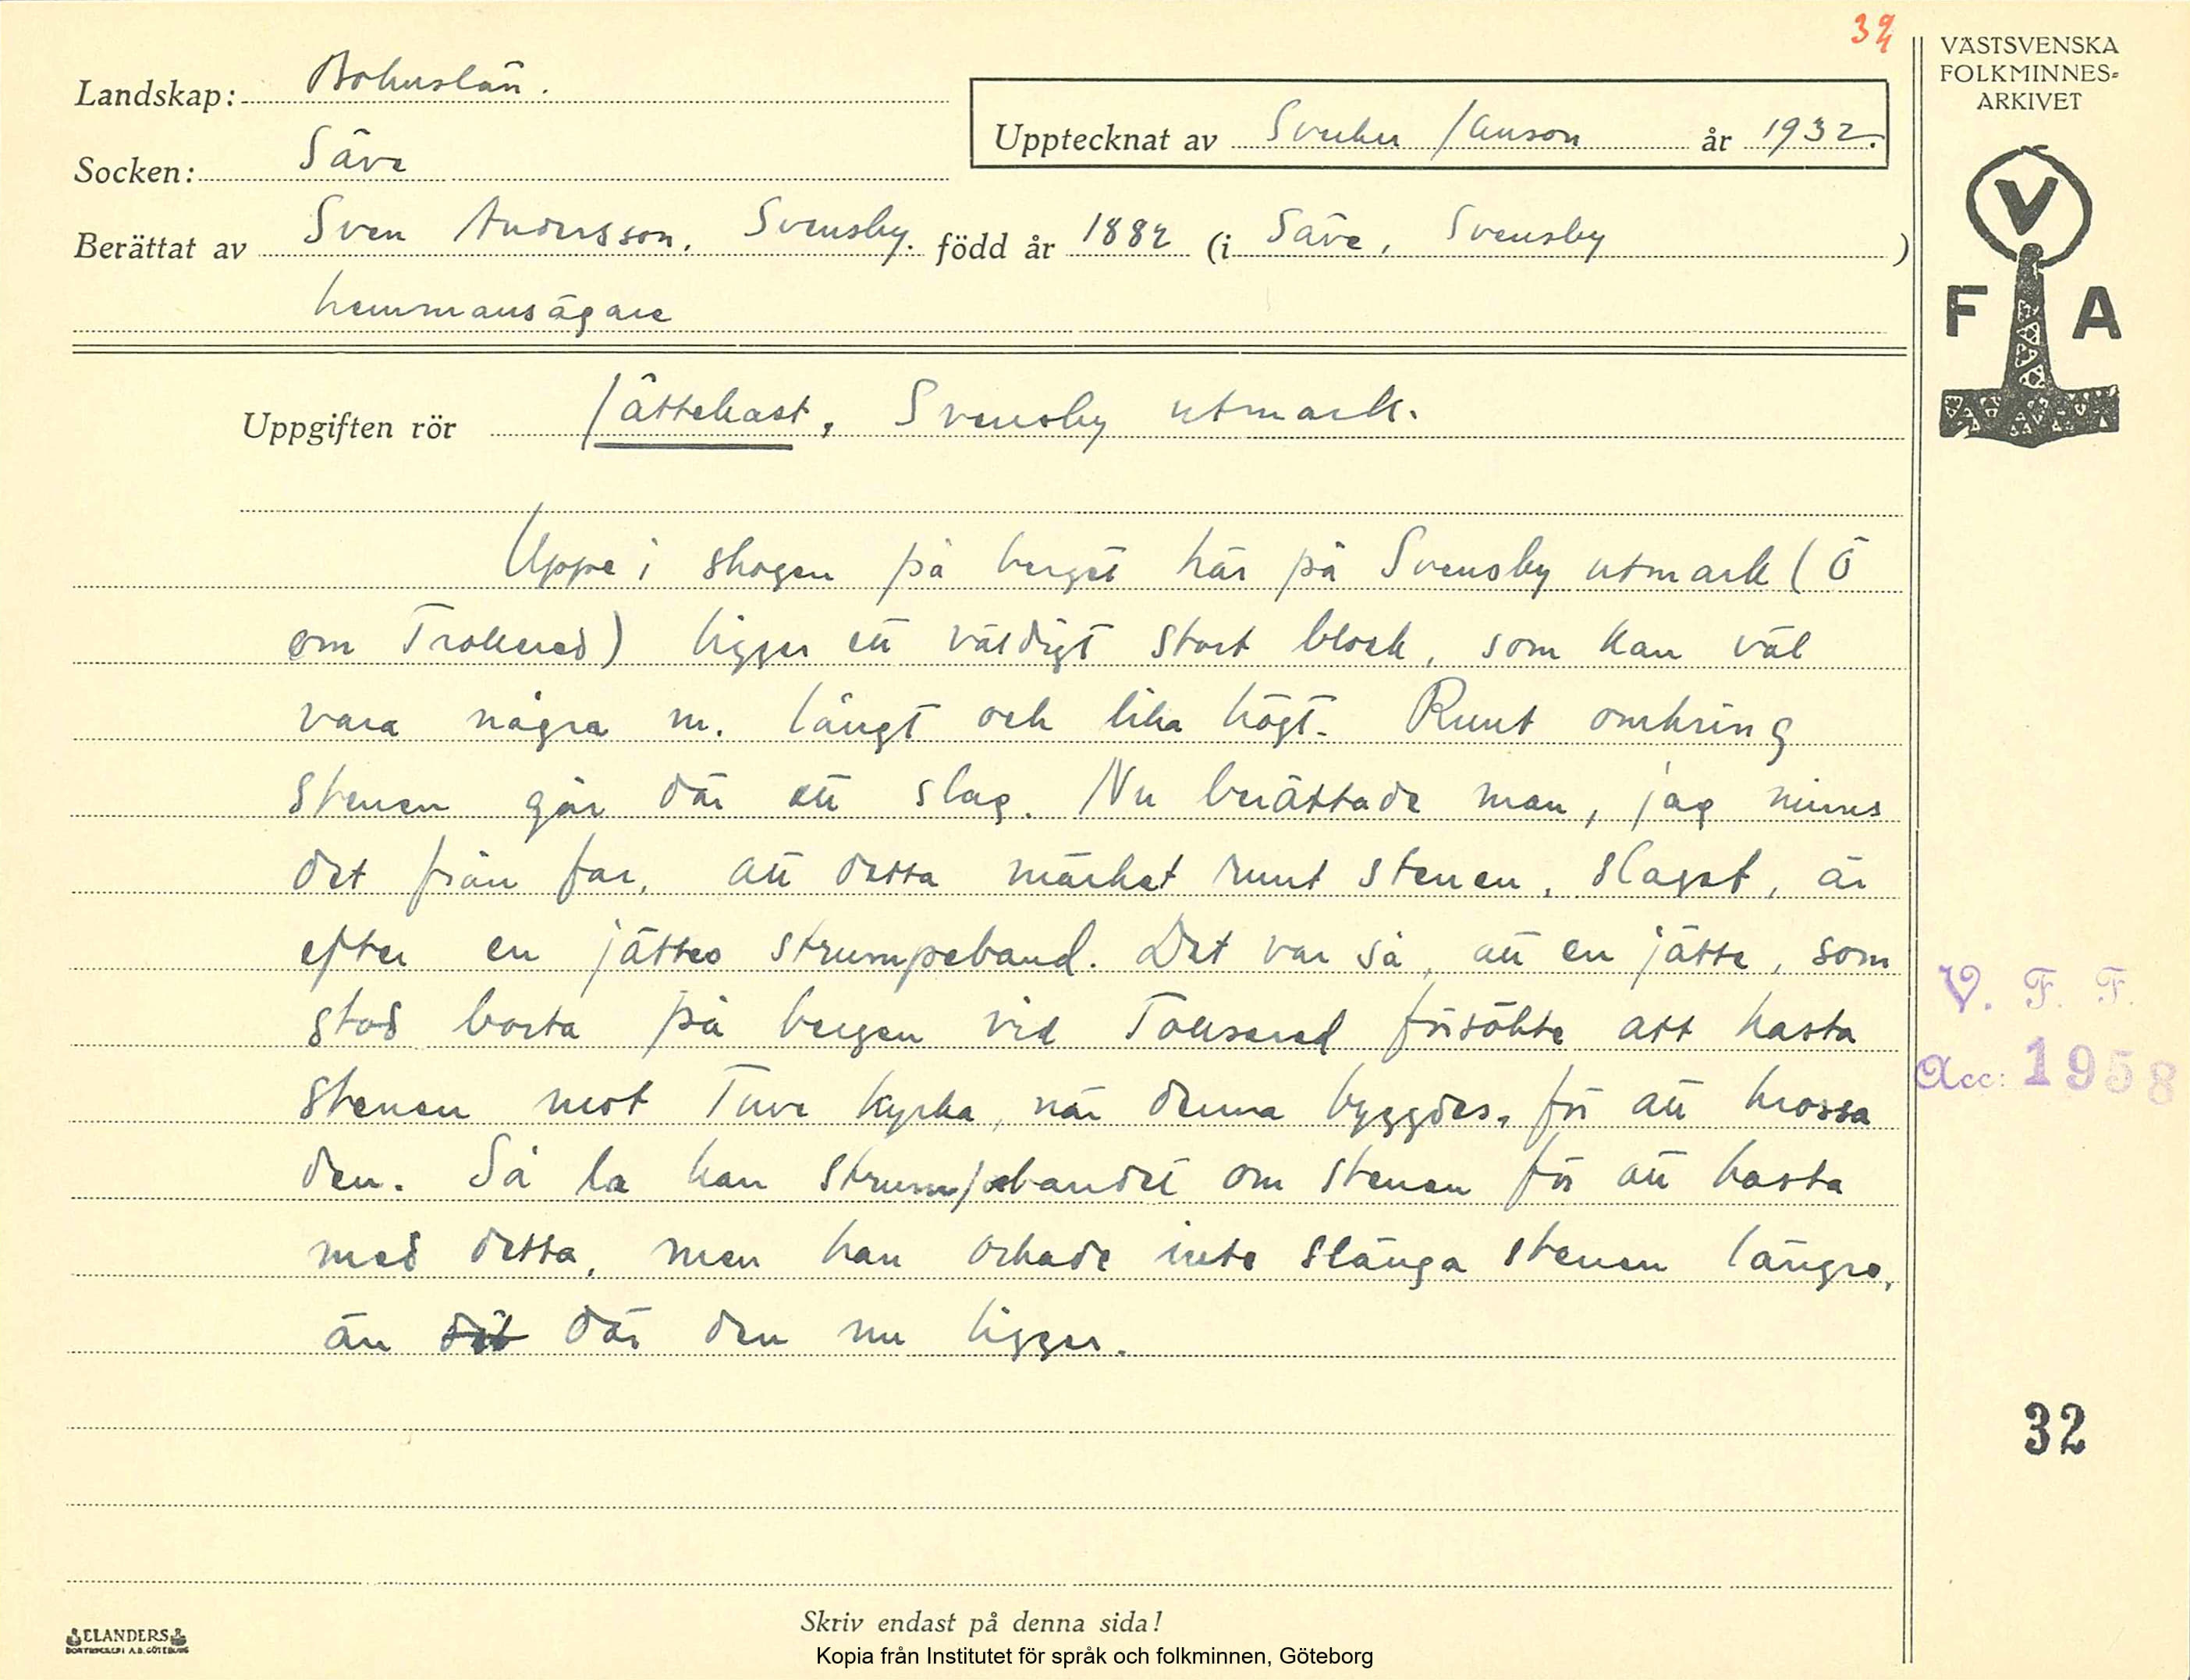 39
VÄSTSVENSKA
FOLKMINNES=
ARKIVET
Landskap: Bohuslän.
Upptecknat av Sverker Janson år 1932.
Socken: Säve
Berättat av Sven Andersson, Svensby. född år 1882 (i Säve, Svensby )
hemmansägare
V
F A
Uppgiften rör Jättekast, Svensby utmark.
Uppe i skogen på berget här på Svensby utmark (Ö
om Trollered) ligger ett väldigt stort block, som kan väl
vara några m. långt och lika högt. Runt omkring
stenen går där ett slag. Nu berättade man, jag minns
det från far, att detta märket runt stenen, slaget, är
efter en jättes strumpeband. Det var så, att en jätte, som
stod borta på bergen vid Tolsered försökte att kasta
stenen mot Tuve kyrka, när denna byggdes, för att krossa
den. Så la han strumpebandet om stenen för att kasta
med detta, men han orkade inte slänga stenen längre,
än dit där den nu ligger.
V. F. F.
Acc: 1958
32
Skriv endast på denna sida!
ELANDERS
BOKTRYCKERI A.B. GÖTEBORG
Kopia från Institutet för språk och folkminnen, Göteborg